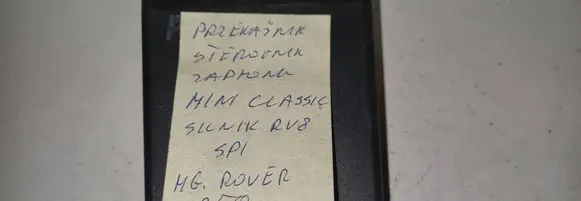 PRZEKAŹNIK
STEROWNIK
ZAPŁONU
MINI CLASSIC
SILNIK RV8
SPI
MG. ROVER